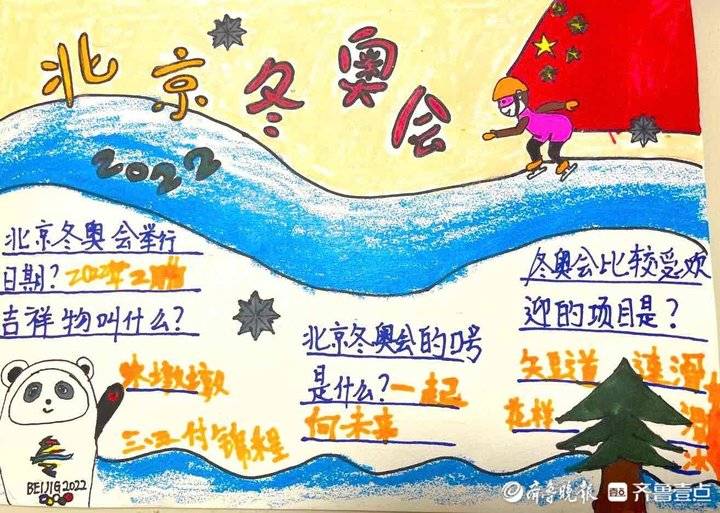 北京冬奥会
2022
北京冬奥会举行
日期?2022年2月
吉祥物叫什么?
墩墩
北京冬奥会的口号
是什么?一起
向未来
冬奥会比较受欢
迎的项目是?
短道 速滑
花样 滑
冰
BEIJIG 2022
齐鲁晚报 齐鲁壹点